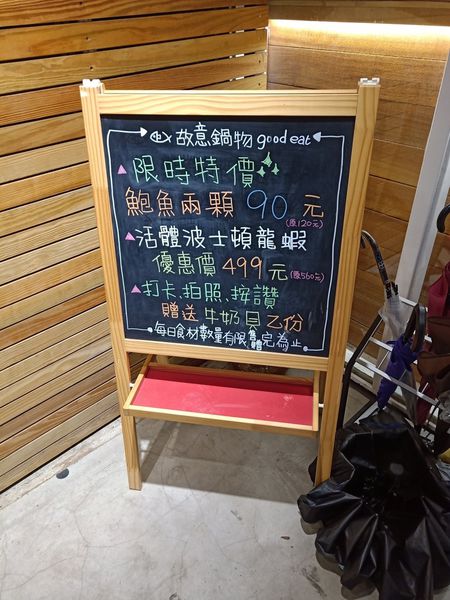 故意鍋物 good eat
限時特價
鮑魚兩顆 90元
(原120元)
活體波士頓龍蝦
優惠價499元(原560元)
打卡、拍照、按讚
贈送牛奶貝乙份
每日食材數量有限售完為止